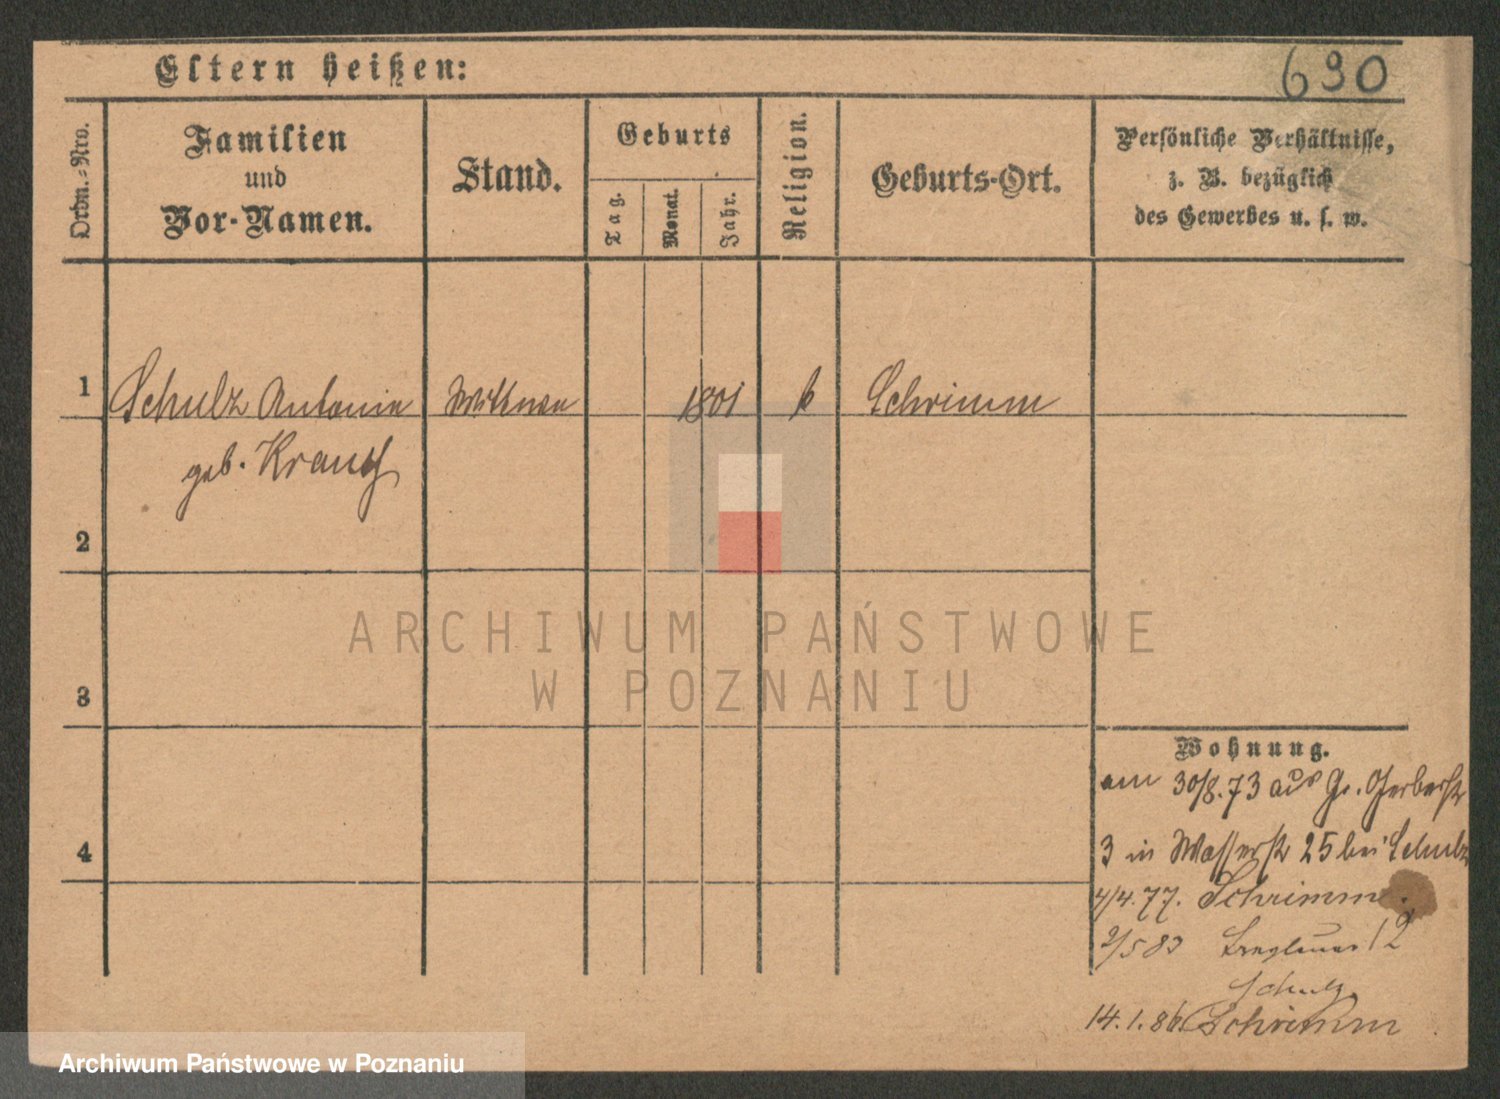 Eltern heißen:
630
Ordn.-Nro.
Familien
und
Vor-Namen.
Stand.
Geburts
Tag.
Monat.
Jahr.
Religion.
Geburts-Ort.
Persönliche Verhältnisse,
z. B. bezüglich
des Gewerbes u. s. w.
1 Schulz Antonie Wittwe 1801 k Schrimm
geb.
2
3
4
Wohnung.
am 30/8.73 aus Gr. Gerberstr
3 in Wasserstr 25 bei Schulz
4/4.77. Schrimm
2/5 83 Breslauer 12
Schulz
14.1.86 Schrimm
ARCHIWUM PAŃSTWOWE
W POZNANIU
Archiwum Państwowe w Poznaniu